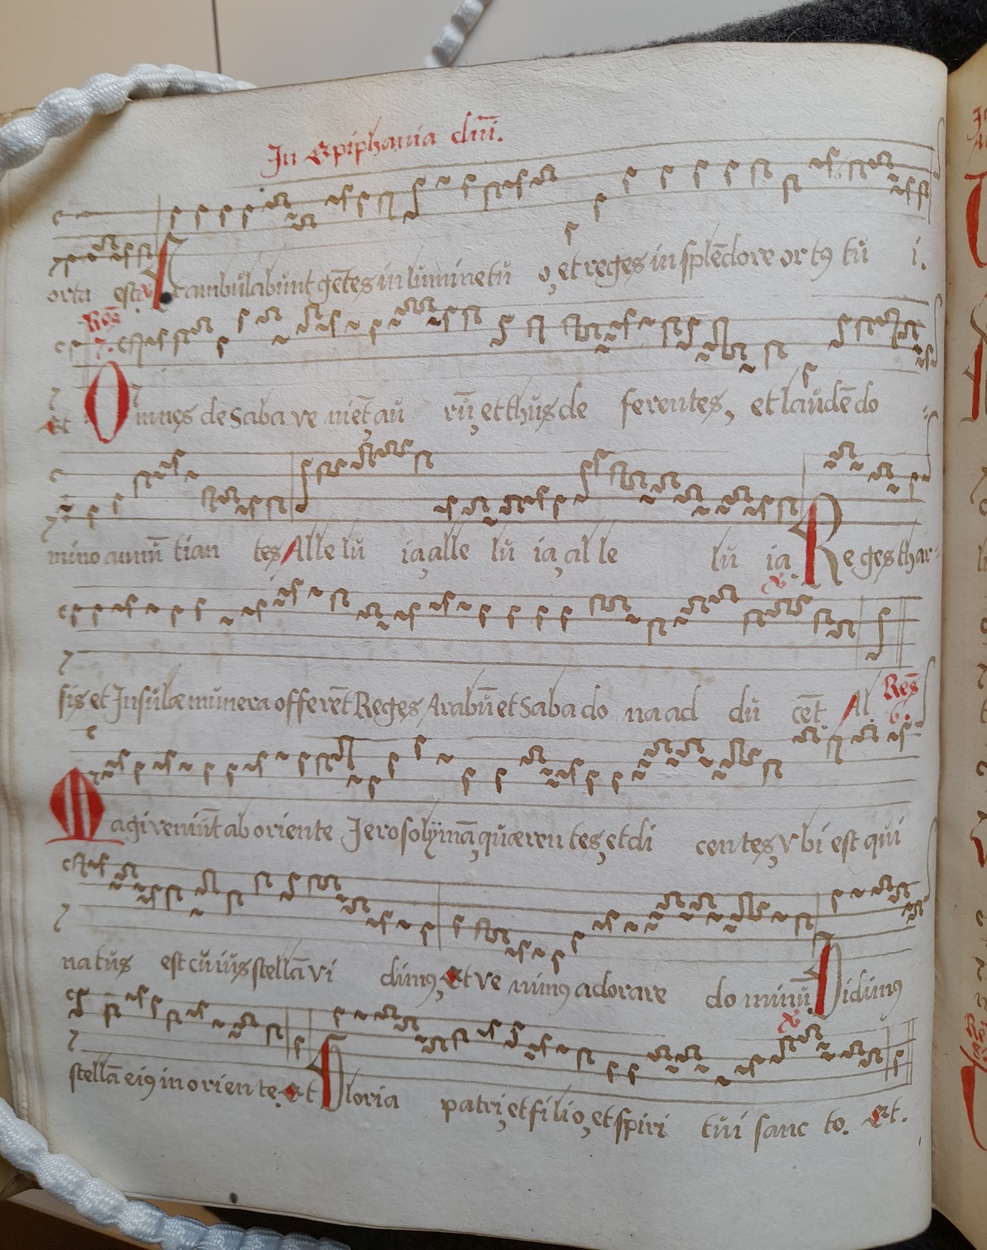 In Epiphania dm̄i.
orta est. Et ambulabunt gētes in lumine tu o, et reges in splēdore ortꝰ tu i.
Res. 7.
Omnes de Saba ve niēt, au rū, et thus de ferentes, et laudē do
mino annū tian tes, Alle lu ia, alle lu ia, al le lu ia. Reges thar-
sis et Insulæ munera offerēt Reges Arabū et Saba do na ad du cēt. Al. Res. 6.
Magi veniūt ab oriente Jerosolymā, quæren tes, et di centes, vbi est qui
natus est cuius stellā vi dimꝰ, Et ve nimꝰ adorare do minū. Vidimꝰ
stellā eiꝰ in oriente. Et Gloria patri, et filio, et spiri tui sanc to. Et.